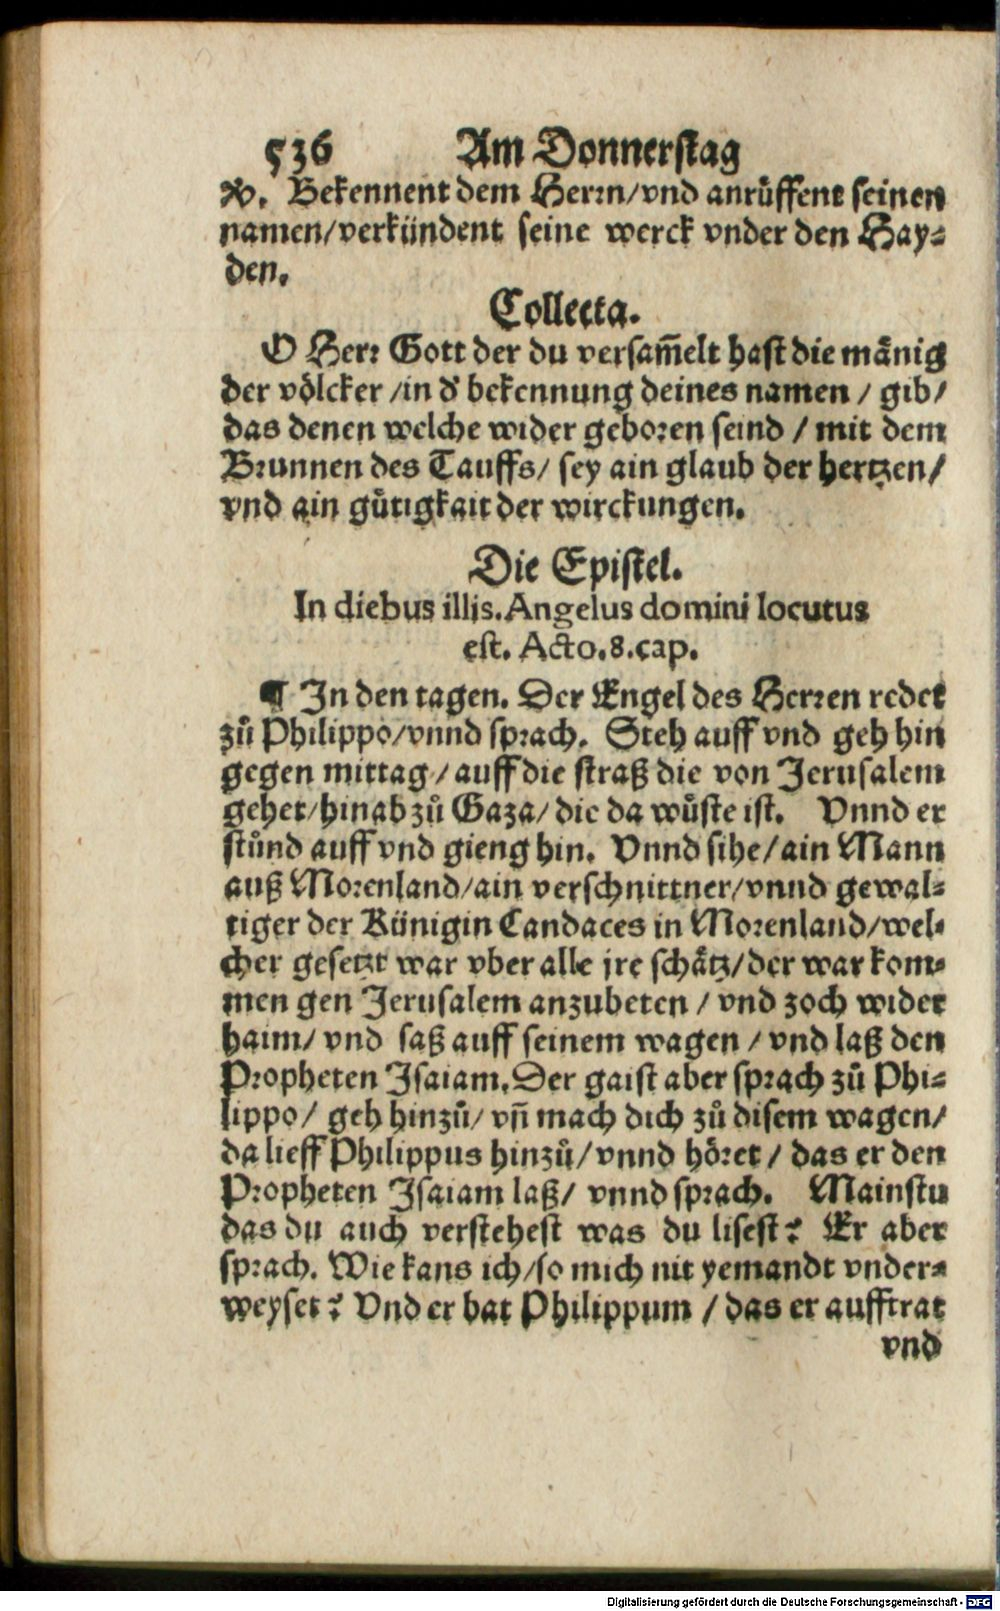 536 Am Donnerstag
℣. Bekennent dem Herrn/vnd anruͤffent seinen
namen/verkündent seine werck vnder den Hay⸗
den.
Collecta.
O Herr Gott der du versam̃elt hast die maͤnig
der voͤlcker /in d' bekennung deines namen / gib/
das denen welche wider geboren seind / mit dem
Brunnen des Tauffs/ sey ain glaub der hertzen/
vnd ain guͤtigkait der wirckungen.
Die Epistel.
In diebus illis. Angelus domini locutus
est. Acto. 8. cap.
¶ In den tagen. Der Engel des Herren redet
zuͦ Philippo/vnnd sprach. Steh auff vnd geh hin
gegen mittag/auff die straß die von Jerusalem
gehet/hinab zuͦ Gaza/die da wuͤste ist. Vnnd er
stuͦnd auff vnd gieng hin. Vnnd sihe/ain Mann
auß Morenland/ain verschnittner/vnnd gewal⸗
tiger der Künigin Candaces in Morenland/wel⸗
cher gesetzt war vber alle jre schaͤtz/der war kom⸗
men gen Jerusalem anzubeten / vnd zoch wider
haim/ vnd saß auff seinem wagen / vnd laß den
Propheten Isaiam. Der gaist aber sprach zuͦ Phi⸗
lippo/ geh hinzuͦ/ vñ mach dich zuͦ disem wagen/
da lieff Philippus hinzuͦ/vnnd hoͤret / das er den
Propheten Isaiam laß/ vnnd sprach. Mainstu
das du auch verstehest was du lisest? Er aber
sprach. Wie kans ich/so mich nit yemandt vnder⸗
weyset? Vnd er bat Philippum / das er aufftrat
vnd
Digitalisierung gefördert durch die Deutsche Forschungsgemeinschaft - DFG